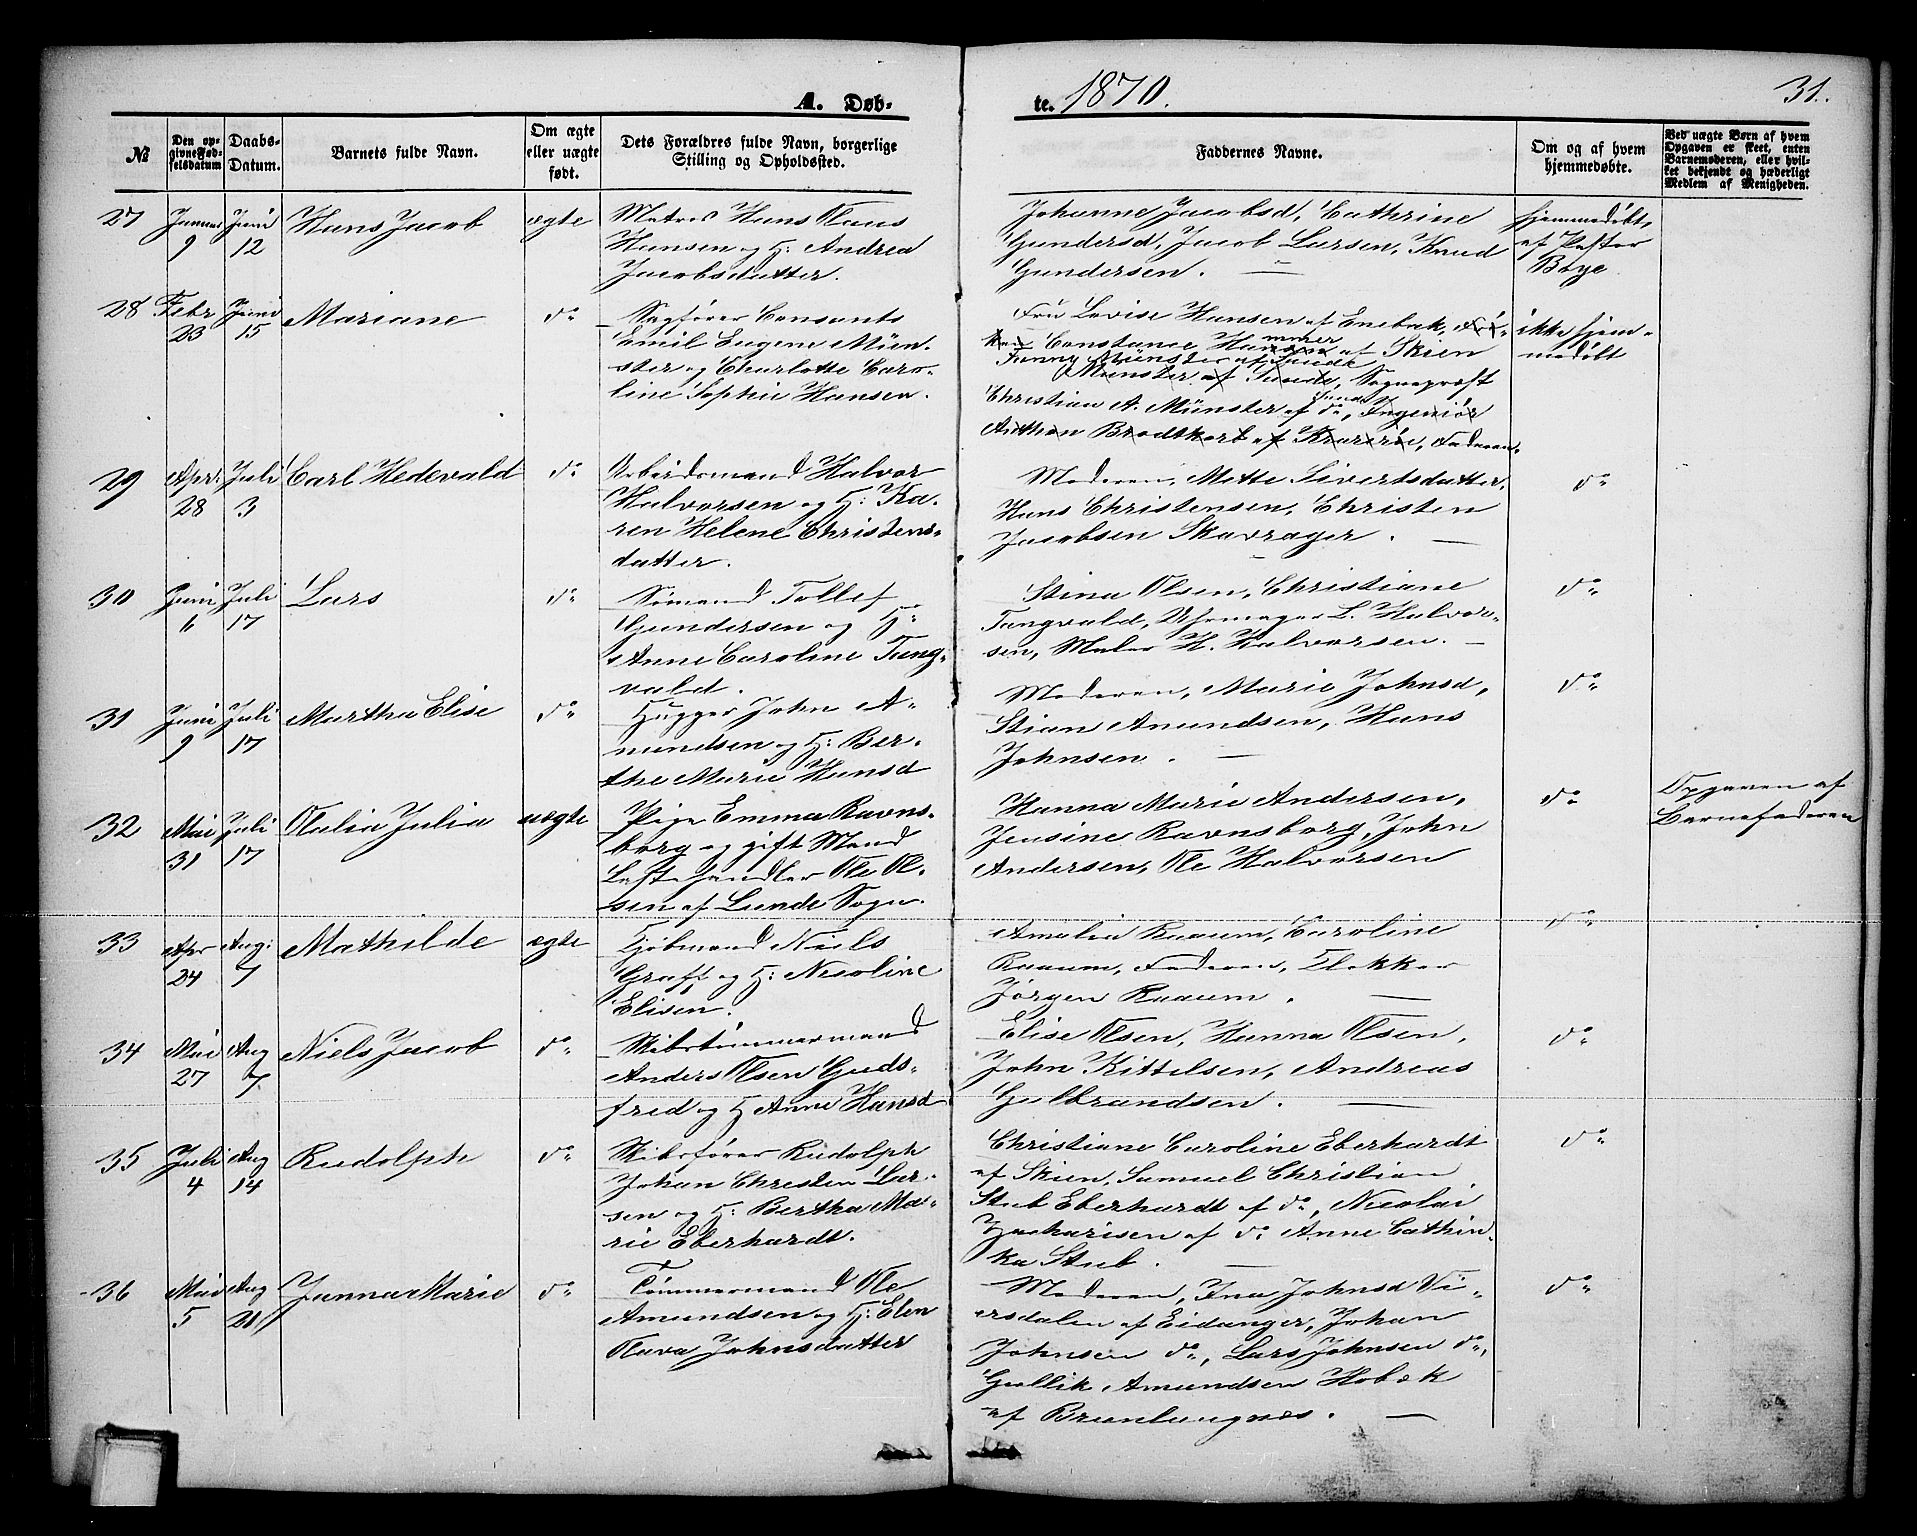 A. Døb-
te. 1870.
31.
№
Den opgivne Fødselsdatum
Daabs-Datum.
Barnets fulde Navn.
Om ægte eller uægte født.
Dets Forældres fulde Navn, borgerlige Stilling og Opholdssted.
Faddernes Navne.
Om og af hvem hjemmedøbte.
Ved uægte Børn af hvem Opgaven er skeet, enten Barnemoderen, eller hvilket bekjendt og hæderligt Medlem af Menigheden.
27 Januar 9 Juni 12 Hans Jacob ægte
Matros Hans Olaus
Hansen og H: Andrea
Jacobsdatter.
Johanne Jacobsd, Cathrine
Gundersd, Jacob Larsen, Knud
Gundersen. —
hjemmedøbt,
af Pastor
Boye
28 Febr 23 Juni 15 Mariane do
Sagfører Consents
Emil Eugene Mün-
ster og Charlotte Caro-
line Sophie Hansen.
Fru Lovise Hansen af Enebak, Frø-
ken Constance Hammer af Skien
Fanny Münster af Suede
Münster af Suede, Sogneprest
Christian A. Münster af do, Ingeniør
Anthon Brodtkorb af Kragerøe, Faderen.
ikke hjem-
medøbt
29 Apr. 28 Juli 3 Carl Hedevald do
Arbeidsmand Halvor
Halvorsen og H: Ka-
ren Helene Christens-
datter.
Moderen, Mette Sivertsdatter,
Hans Christensen, Christen
Jacobsen Skavrager. —
do
30 Juni 6 Juli 17 Lars do
Sømand Tollef
Gundersen og H:
Anne Caroline Tang-
vald.
Stina Olsen, Christiane
Tangvald, Uhrmager L. Halvor-
sen, Maler H. Halvorsen. —
do
31 Juni 9 Juli 17 Martha Elise do
Hugger John A-
mundsen og H: Ber-
the Marie Hansd
Moderen, Marie Johnsd,
Stian Amundsen, Hans
Johnsen. —
do
32 Mai 31 Juli 17 Olalia Julia uægte
Pige Emma Ravns-
borg og gift Mand
Lastehandler Ole Ol-
sen af Lunde Sogn.
Hanna Marie Andersen,
Jensine Ravnsborg, John
Andersen, Ole Halvorsen
do
Opgaven af
Barnefaderen
33 Apr 24 Aug: 7 Mathilde ægte
Kjøbmand Niels
Graff og H: Nicoline
Elisen.
Amalia Raaum, Caroline
Raaum, Faderen, Klokker
Jørgen Raaum. —
do
34 Mai 27 Aug 7 Niels Jacob do
Skibstømmermand
Anders Olsen Guds-
fred og H Anne Hansd
Elise Olsen, Hanna Olsen,
John Kittelsen, Andreas
Gulbrandsen. —
do
35 Juli 4 Aug 14 Rudolph do
Skibsfører Rudolph
Johan Christen Lar-
sen og H: Bertha Ma-
rie Eberhardt.
Christiane Caroline Eberhardt
af Skien, Samuel Christian
Stub Eberhardt af do, Nicolai
Zachariasen af do Anne Cathin-
ka Stub. —
do
36 Mai 5 Aug 21 Janna Marie do
Tømmermand Ole
Amundsen og H: Elen
Olava Johnsdatter
Moderen, Ina Johnsd Vi-
ersdalen af Eidanger, Johan
Johnsen do, Lars Johnsen do,
Gullik Amundsen Hobæk
af Brunlangnæs. —
do